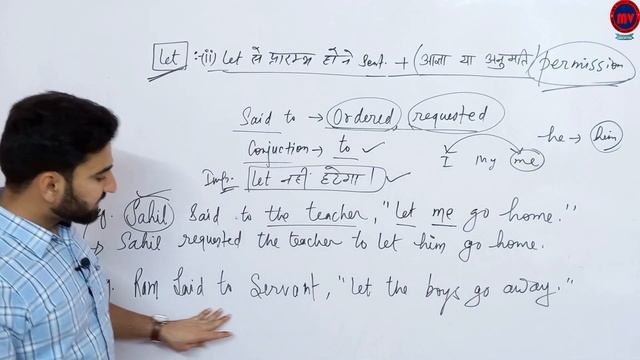 MV
Let :-(ii) Let से प्रारम्भ होने Sent. + (आज्ञा या अनुमति) permission
Said to → Ordered, requested
he → him
Conjuction → to ✓
I my me
Imp. Let नहीं हटेगा। ✓
eg. Sahil Said to the teacher, "Let me go home."
→ Sahil requested the teacher to let him go home.
Ram Said to Servant, "Let the boys go away."